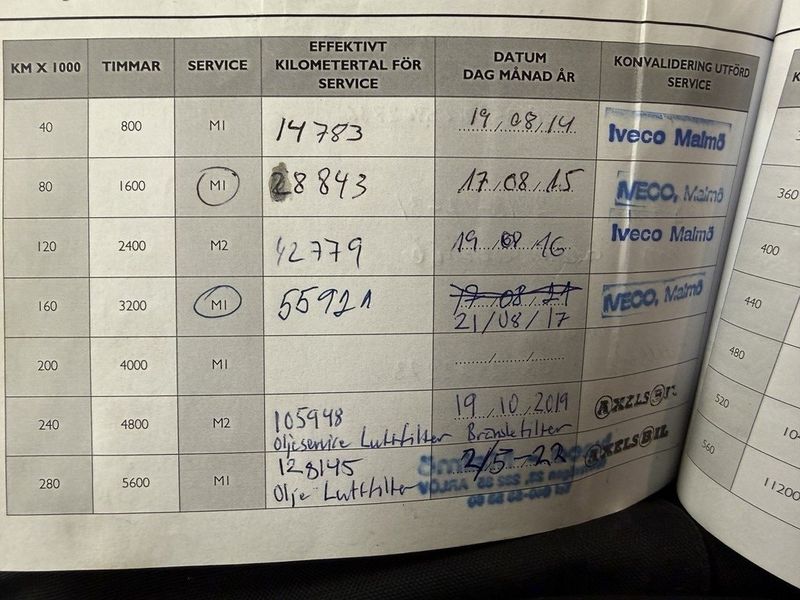 KM X 1000 TIMMAR SERVICE EFFEKTIVT KILOMETERTAL FÖR SERVICE DATUM DAG MÅNAD ÅR KONVALIDERING UTFÖRD SERVICE
40 800 M1 14783 19/08/14 Iveco Malmö
80 1600 M1 28843 17/08/15 IVECO, Malmö
120 2400 M2 42779 19 08 16 Iveco Malmö
160 3200 M1 55921 17/08/
21/08/17 IVECO, Malmö
200 4000 M1
240 4800 M2 105948 19/10/2019 AXELS BIL
Oljeservice Luftfilter Bränslefilter
280 5600 M1 128145 2/5-22 AXELS BIL
Olje Luftfilter
360
400
440
480
520
560
11200